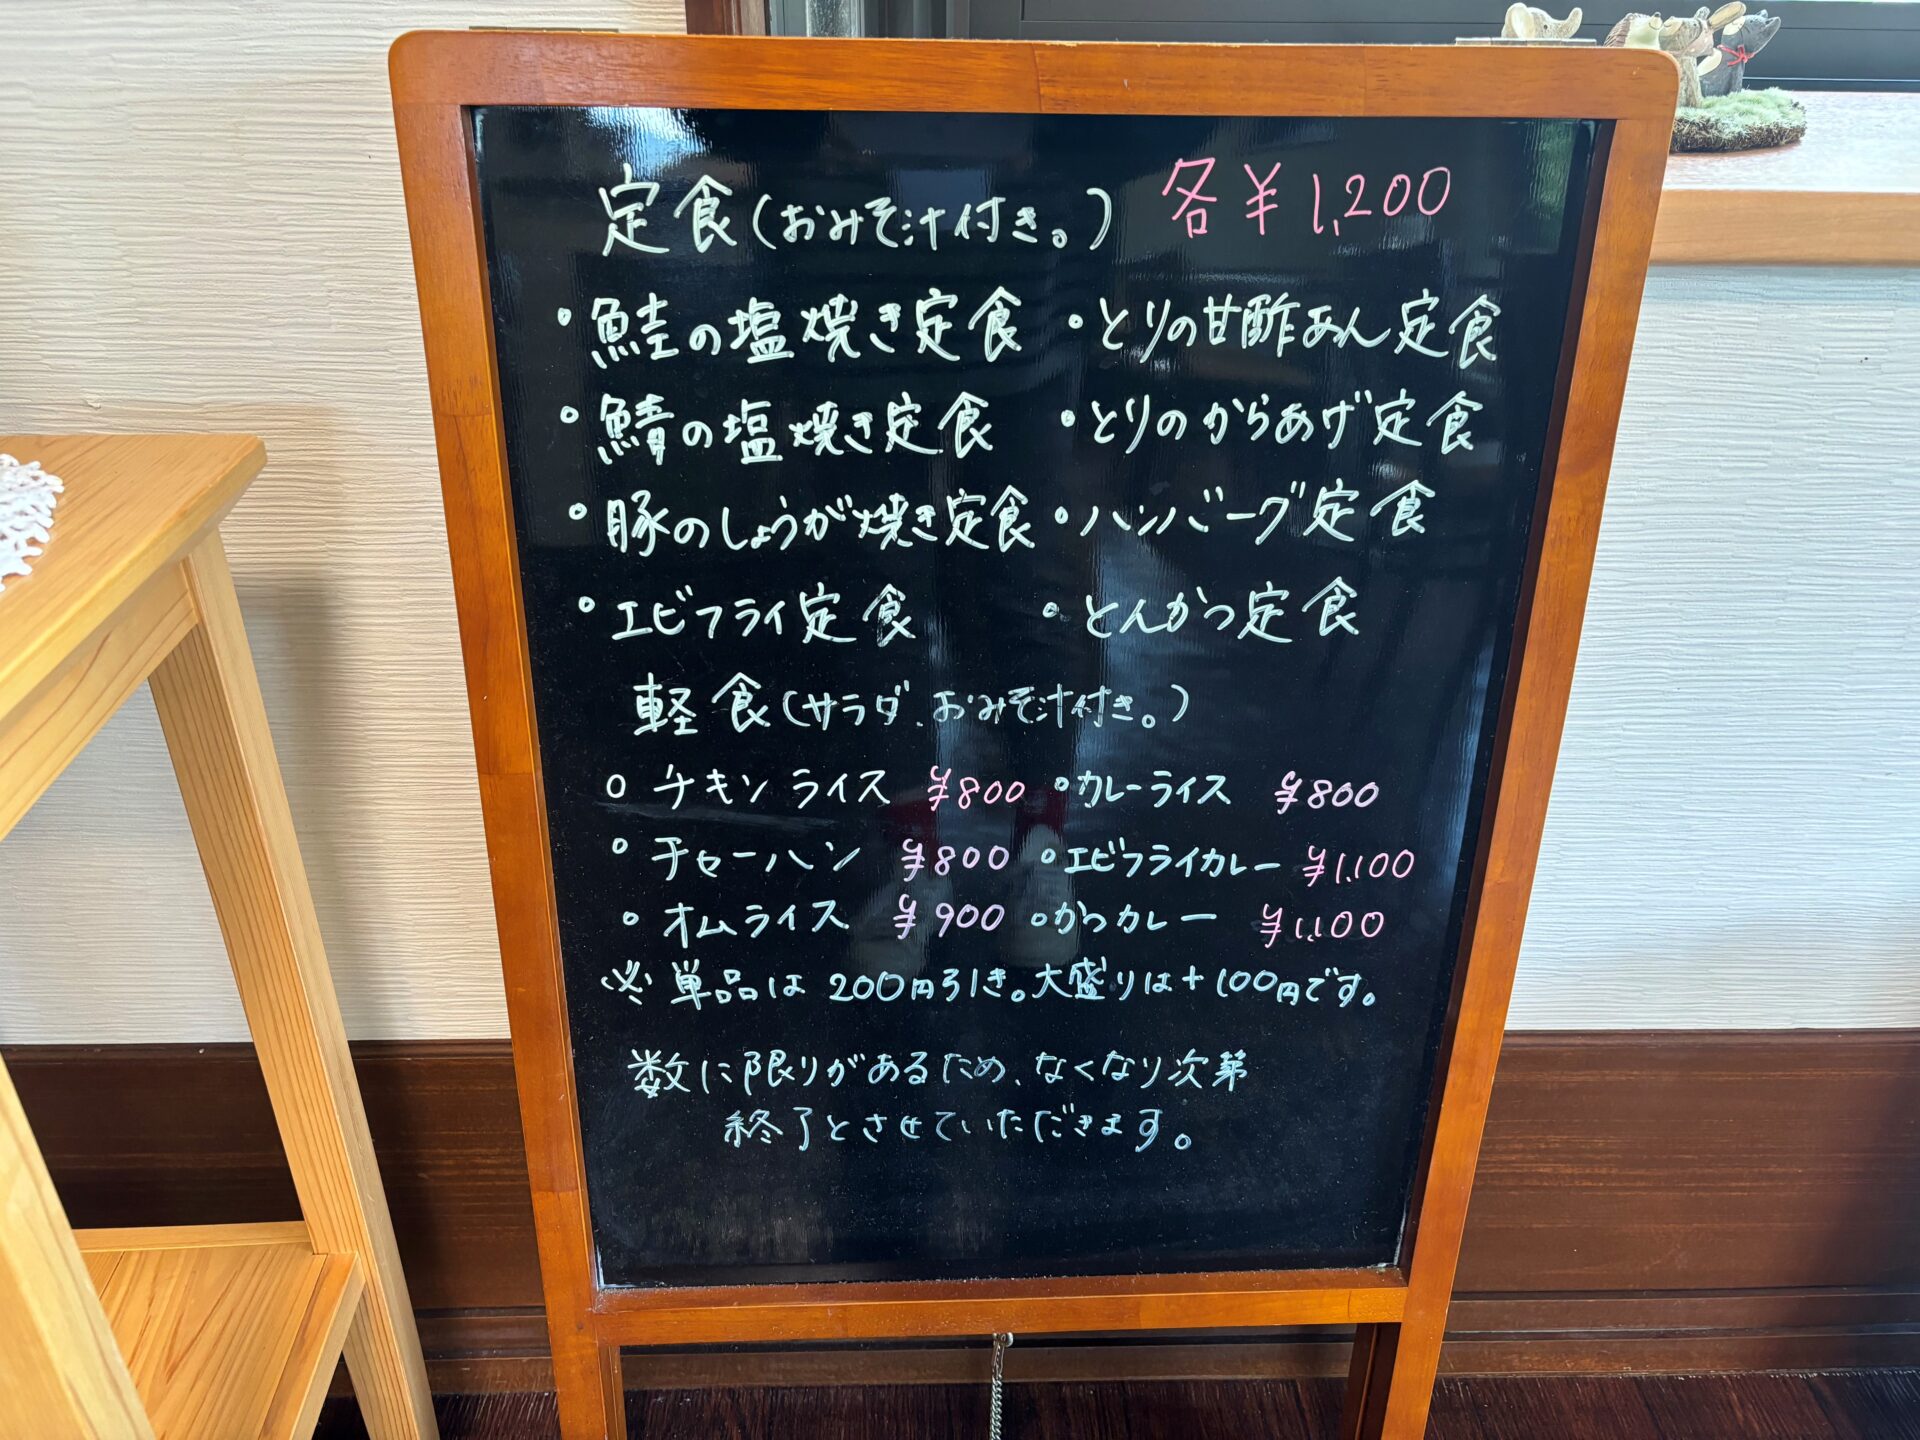 定食(おみそ汁付き。) 各¥1,200
・鮭の塩焼き定食 ・とりの甘酢あん定食
・鯖の塩焼き定食 ・とりのからあげ定食
・豚のしょうが焼き定食 ・ハンバーグ定食
・エビフライ定食 ・とんかつ定食
軽食(サラダ、おみそ汁付き。)
○ チキンライス ¥800 ・カレーライス ¥800
・チャーハン ¥800 ・エビフライカレー ¥1,100
・オムライス ¥900 ・かつカレー ¥1,100
※単品は200円引き。大盛りは+100円です。
数に限りがあるため、なくなり次第
終了とさせていただきます。